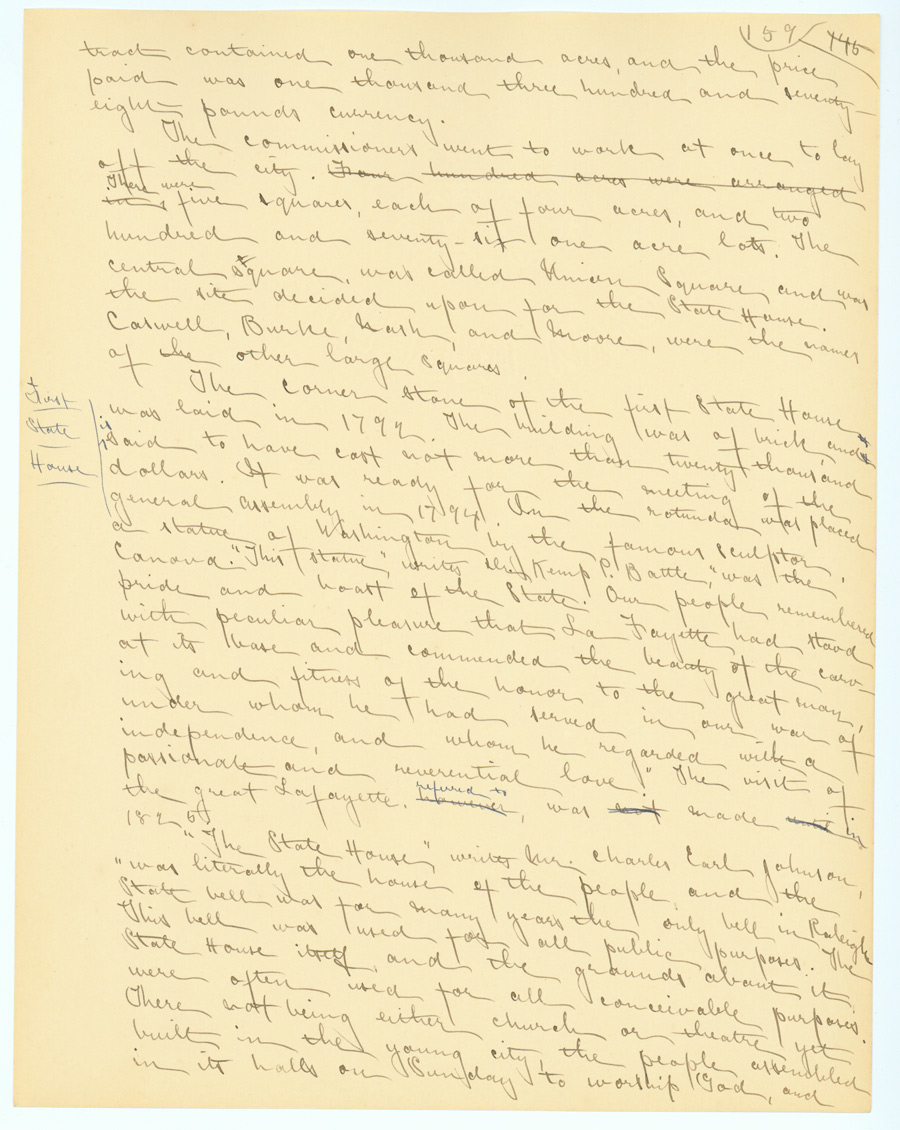 159 145
tract contained one thousand acres, and the price
paid was one thousand three hundred and seventy-
eight pounds currency.
The commissioners went to work at once to lay
off the city. Four hundred acres were arranged
There were
in five squares, each of four acres, and two
hundred and seventy-six one acre lots. The
central square, was called Union Square and was
the site decided upon for the State House.
Caswell, Burke, Nash, and Moore, were the names
of the other large squares.
The corner stone of the first State House
was laid in 1792. The building was of brick, and
is
said to have cost not more than twenty thousand
First
State
House
dollars. It was ready for the meeting of the
general assembly in 1794. In the rotunda was placed
a statue of Washington by the famous sculptor,
Canova. "This statue," writes Kemp P. Battle, "was the
pride and boast of the State. Our people remembered
with peculiar pleasure that La Fayette had stood
at its base and commended the beauty of the carv-
ing and fitness of the honor to the great man,
under whom he had served in our war of
independence, and whom he regarded with a
passionate and reverential love." The visit of
referred to
the great Lafayette, however, was not made until in
1825.
"The State House," writes Mr. Charles Earl Johnson,
"was literally the house of the people, and the
State bell was for many years the only bell in Raleigh.
This bell was used for all public purposes. The
State House itself, and the grounds about it,
were often used for all conceivable purposes.
There not being either church or theatre yet
built in the young city, the people assembled
in its halls on Sunday to worship God, and